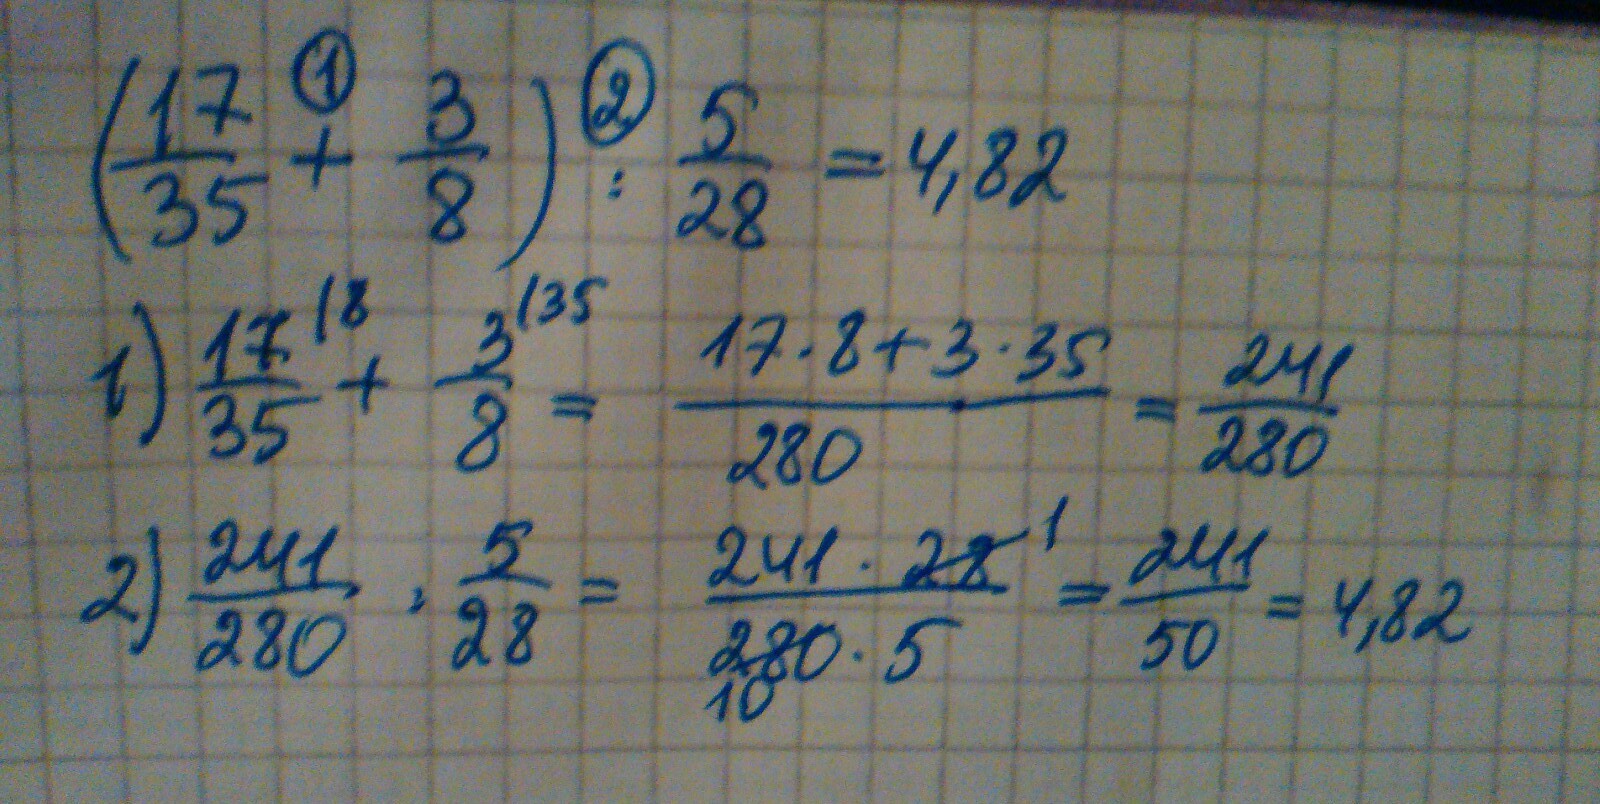 (17/35 + 3/8) : 5/28 = 4,82
① ②
1) 17/35 |8 + 3/8 |35 = (17·8+3·35)/280 = 241/280
2) 241/280 : 5/28 = (241·28)/(280·5) = 241/50 = 4,82
1
10